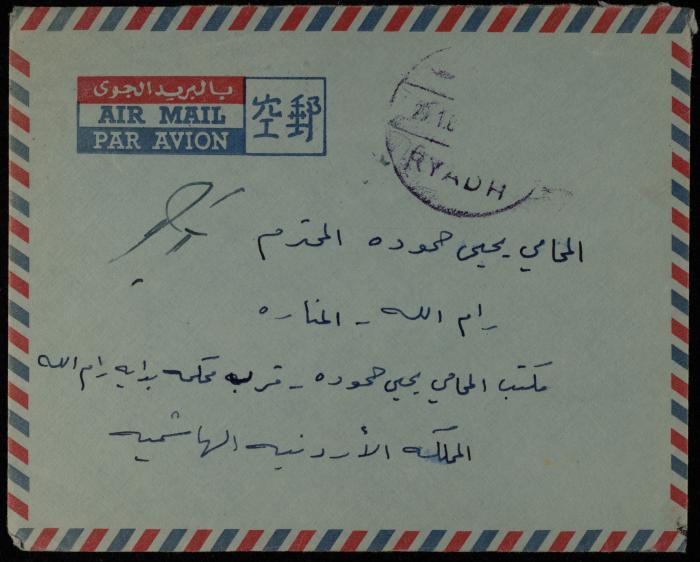 بالبريد الجوى
AIR MAIL
PAR AVION
空郵
RYADH
المحامي يحيى حموده المحترم
رام الله - المناره
مكتب المحامي يحيى حموده - قرب محكمه بدايه رام الله
المملكه الأردنيه الهاشميه